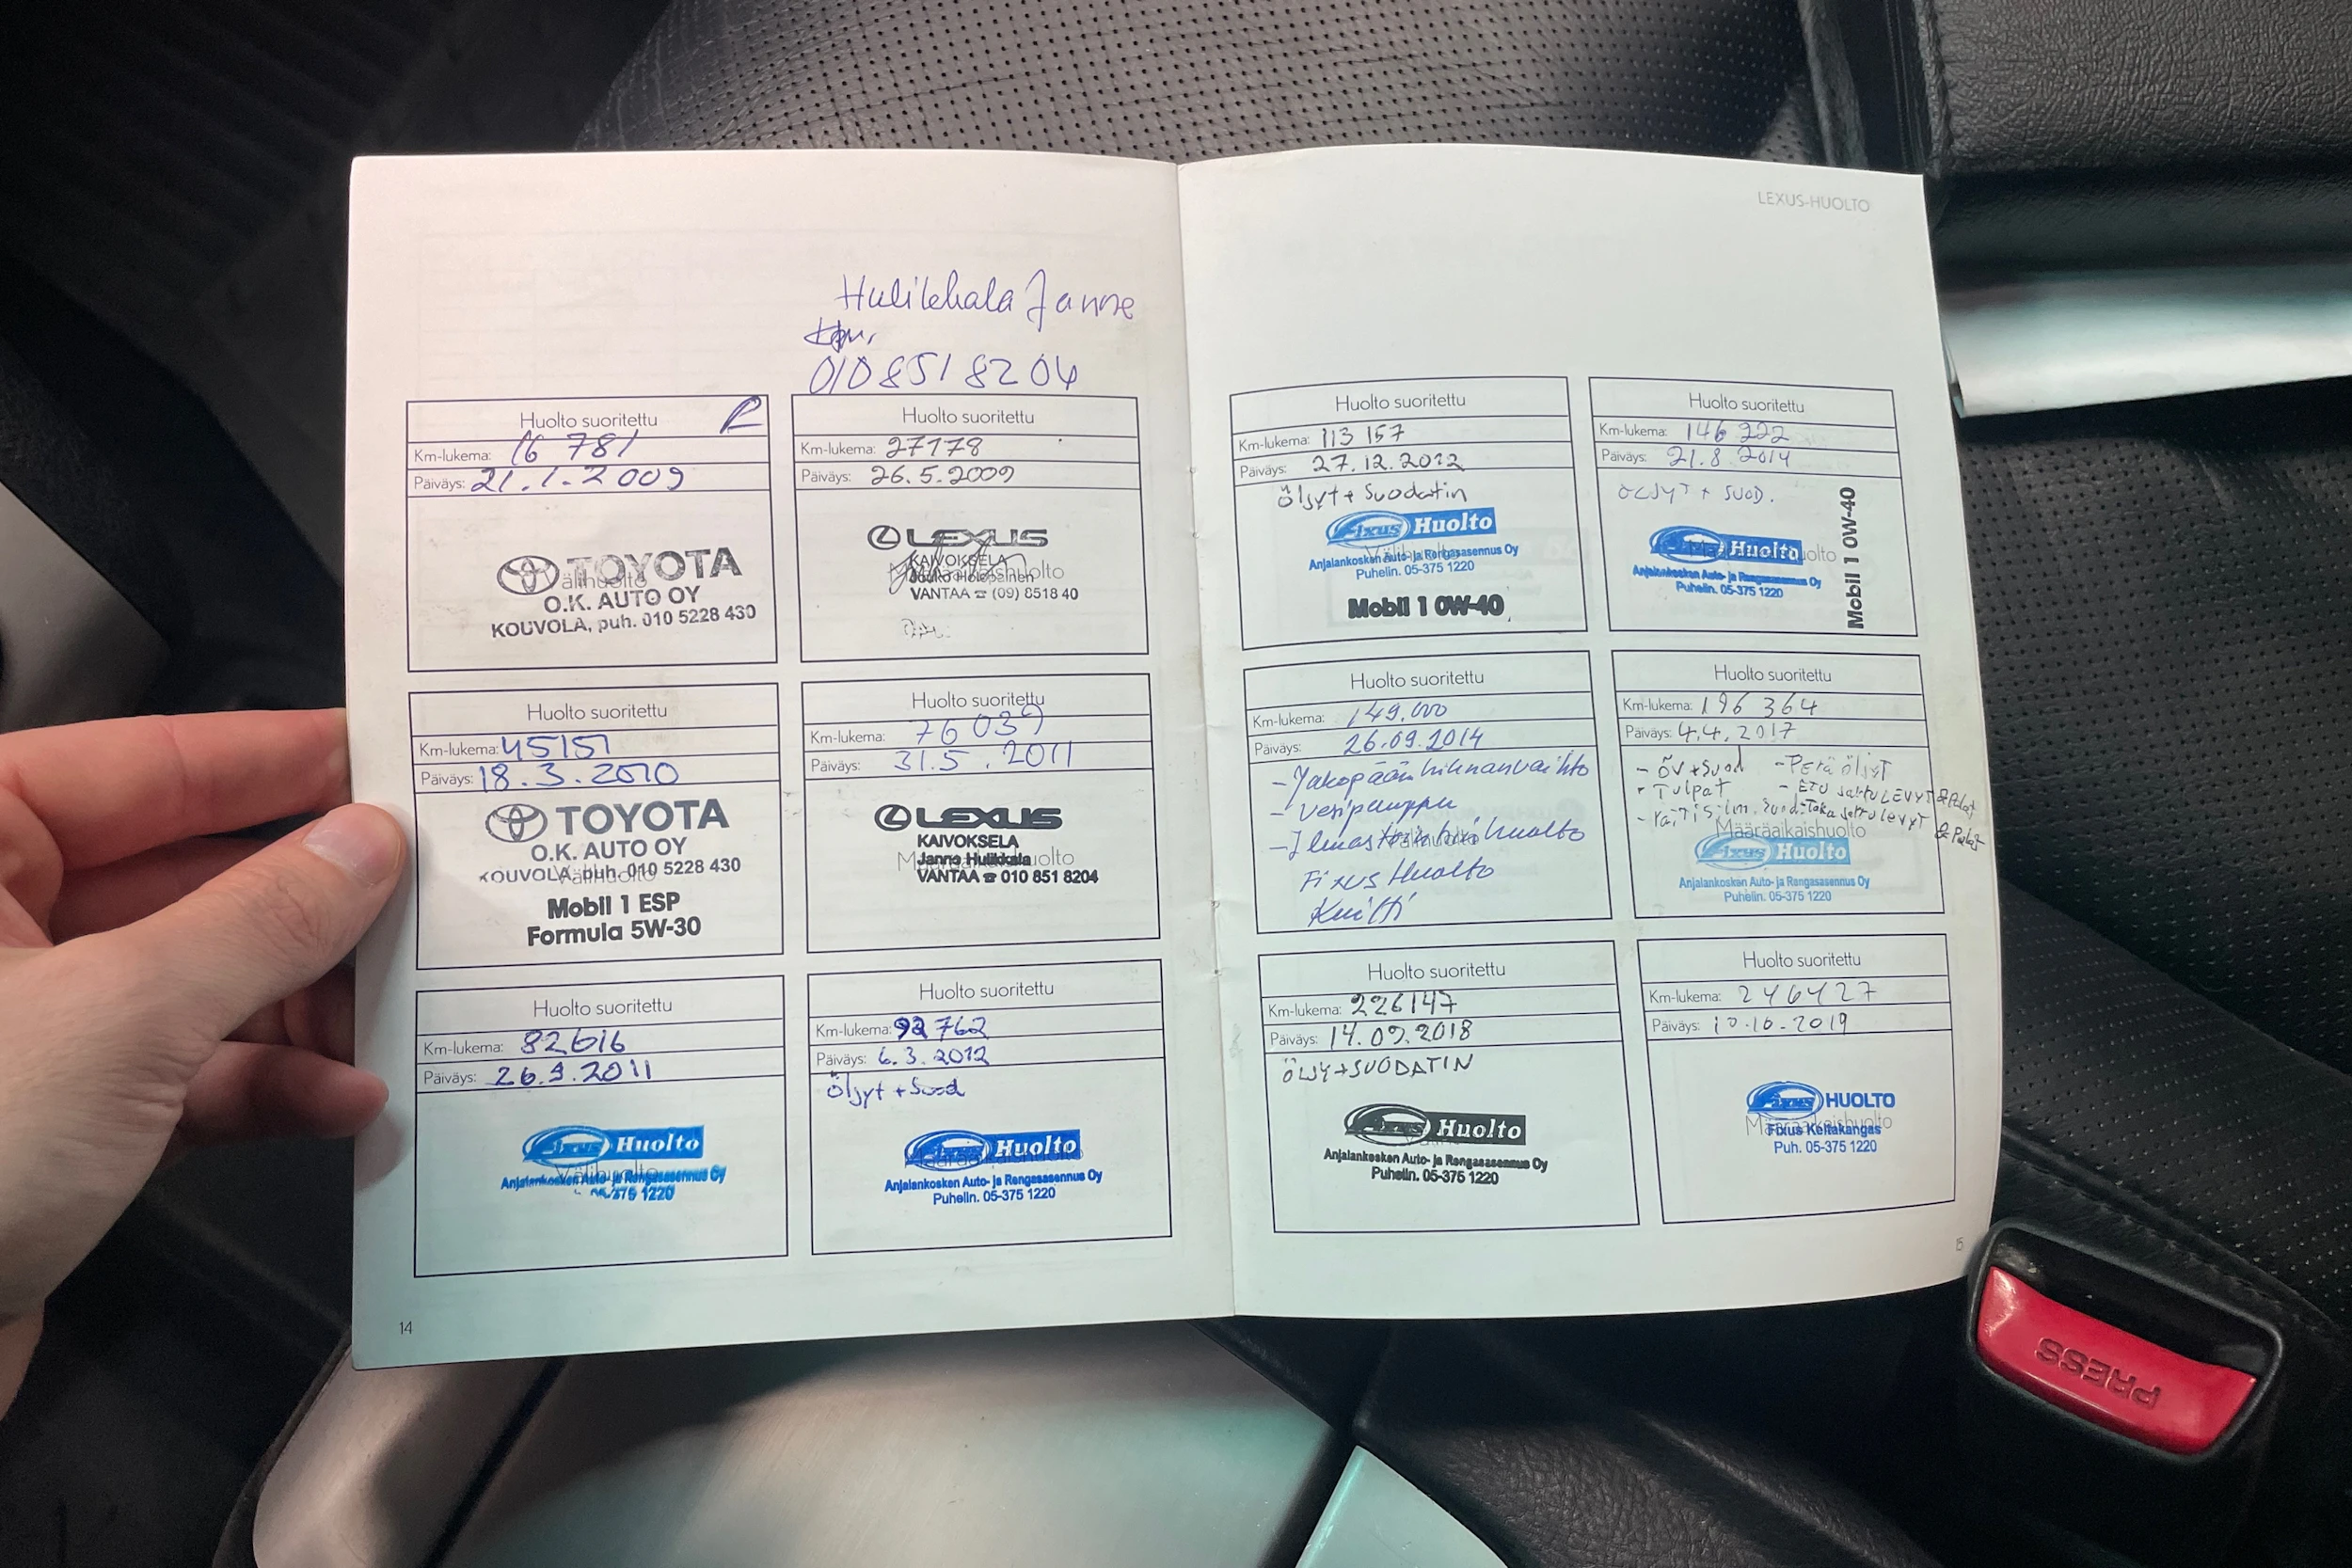 LEXUS-HUOLTO
Hulikkala Janne
010 851 8204
Huolto suoritettu
Km-lukema: 16 781
Päiväys: 21.1.2009
Välihuolto
TOYOTA
O.K. AUTO OY
KOUVOLA, puh. 010 5228 430
Huolto suoritettu
Km-lukema: 27178
Päiväys: 26.5.2009
LEXUS
KAIVOKSELA
Jouko Holopainen
Määräaikaishuolto
VANTAA ☎ (09) 8518 40
Huolto suoritettu
Km-lukema: 45151
Päiväys: 18.3.2010
TOYOTA
O.K. AUTO OY
KOUVOLA, puh. 010 5228 430
Välihuolto
Mobil 1 ESP
Formula 5W-30
Huolto suoritettu
Km-lukema: 76 039
Päiväys: 31.5.2011
LEXUS
KAIVOKSELA
Janne Hulikkala
Määräaikaishuolto
VANTAA ☎ 010 851 8204
Huolto suoritettu
Km-lukema: 82616
Päiväys: 26.9.2011
Fixus Huolto
Välihuolto
Anjalankosken Auto- ja Rengasasennus Oy
05-375 1220
Huolto suoritettu
Km-lukema: 92 762
Päiväys: 6.3.2012
Öljyt + Suod
Fixus Huolto
Määräaikaishuolto
Anjalankosken Auto- ja Rengasasennus Oy
Puhelin. 05-375 1220
14
Huolto suoritettu
Km-lukema: 113 157
Päiväys: 27.12.2012
Öljyt + Suodatin
Fixus Huolto
Välihuolto
Anjalankosken Auto- ja Rengasasennus Oy
Puhelin. 05-375 1220
Mobil 1 0W-40
Huolto suoritettu
Km-lukema: 146 222
Päiväys: 21.8.2014
ÖLJYT + SUOD.
Fixus Huolto
Määräaikaishuolto
Anjalankosken Auto- ja Rengasasennus Oy
Puhelin. 05-375 1220
Mobil 1 0W-40
Huolto suoritettu
Km-lukema: 149.000
Päiväys: 26.09.2014
- Jakopäänhihnanvaihto
- Vesipumppu
- Ilmastointihuolto
Välihuolto
Fixus Huolto
Kuitti
Huolto suoritettu
Km-lukema: 196 364
Päiväys: 4.4.2017
- ÖV + Suod - Perä öljyt
- Tulpat - ETU jarruLEVYT & Palat
- Raitisilm. Suod. - Taka jarrulevyt & Palat
Määräaikaishuolto
Fixus Huolto
Anjalankosken Auto- ja Rengasasennus Oy
Puhelin. 05-375 1220
Huolto suoritettu
Km-lukema: 226147
Päiväys: 14.09.2018
ÖLJY + SUODATIN
Fixus Huolto
Anjalankosken Auto- ja Rengasasennus Oy
Puhelin. 05-375 1220
Huolto suoritettu
Km-lukema: 246427
Päiväys: 10.10.2019
Fixus HUOLTO
Määräaikaishuolto
Fixus Keltakangas
Puh. 05-375 1220
15
PRESS